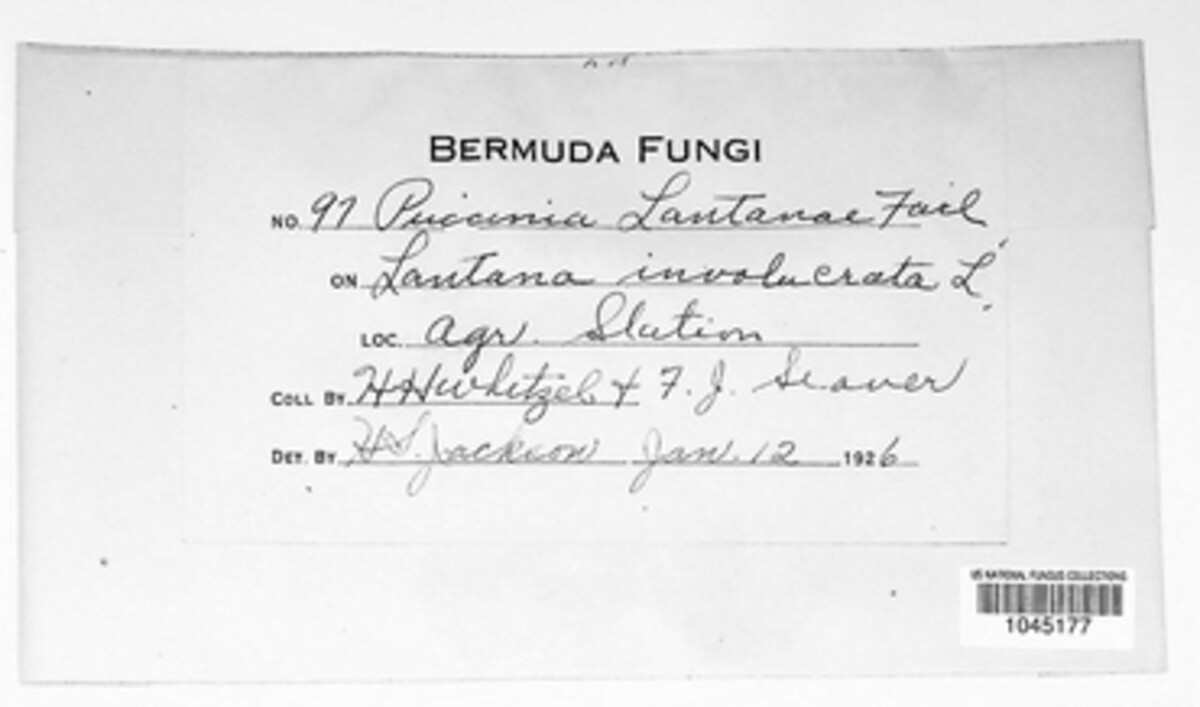 BERMUDA FUNGI
NO. 97 Puccinia Lantanae Farl.
ON Lantana involucrata L.
LOC. Agr. Station
COLL. BY H H Whetzel & F. J. Seaver
DET. BY H S. Jackson Jan. 12 1926
US NATIONAL FUNGUS COLLECTIONS
1045177